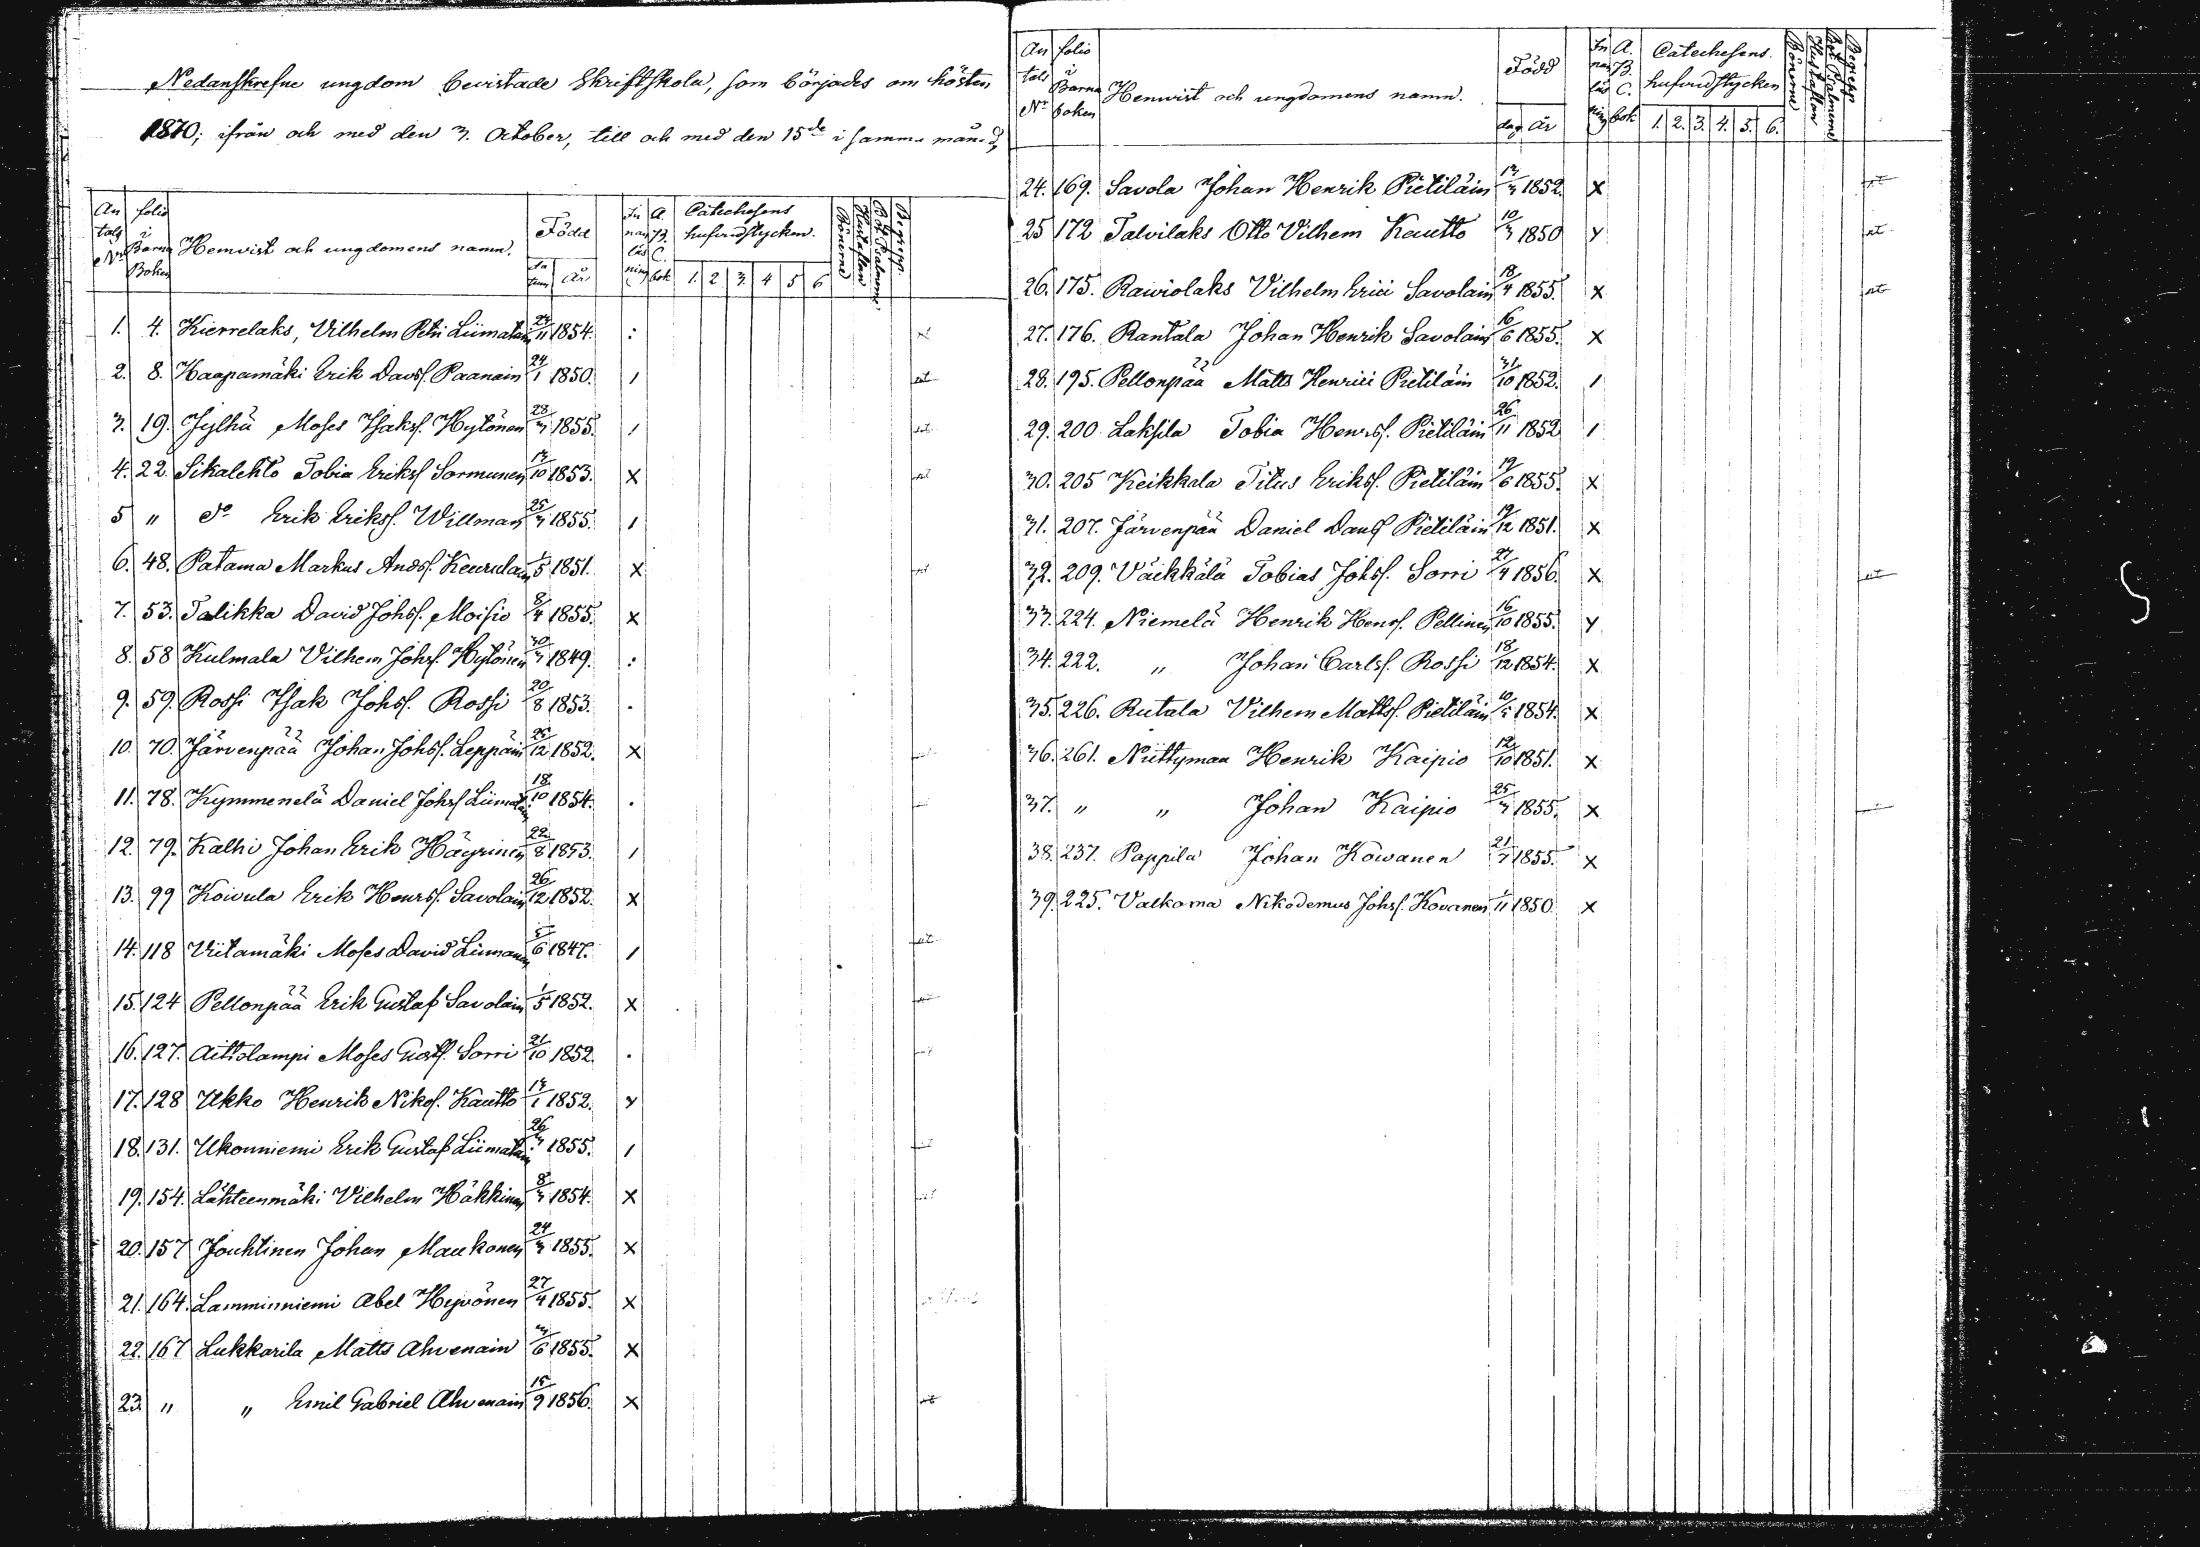 Nedanskrefne ungdom bevistade Skriftskola, som börjades om hösten
1870; ifrån och med den 3. October, till och med den 15de i samma månad,
An tals No folio i Barna Boken Hemvist och ungdomens namn. Född Datum År Innanläsning A. B. C. bok Catechesens hufvudstycken. 1. 2 3. 4 5 6 Bönerne Hustaflan Bot Psalmerne Begrepp.
1. 4. Kierrelaks, Vilhelm Petri Liimatain 24/11 1854. :
2. 8. Haapamäki Erik Davs. Paanain 24/1 1850. /
3. 19. Jylhä Moses Isaks. Hytönen 28/3 1855. /
4. 22. Sikalehto Tobia Eriks. Sormunen 13/10 1853. X
5 " do Erik Eriks. Willman 25/3 1855. /
6. 48. Patama Markus Ands. Keurulain 1/5 1851. X
7. 53. Talikka David Johs. Moisio 8/4 1855. X
8. 58 Kulmala Vilhem Johs. Hytönen 30/3 1849. :
9. 59. Rossi Isak Johs. Rossi 20/8 1853. .
10. 70. Järvenpää Johan Johs. Leppäin 25/12 1852. X
11. 78. Kymmenelä Daniel Johs. Liimatain 18/10 1854. .
12. 79. Kalhi Johan Erik Häyrinen 22/8 1853. /
13. 99 Koivula Erik Henrs. Savolain 26/12 1852. X
14. 118 Viitamäki Moses David Liimatain 5/6 1847. /
15. 124 Pellonpää Erik Gustaf Savolain 1/5 1852. X
16. 127. Aittolampi Moses Gusts. Sorri 21/10 1852. .
17. 128 Ukko Henrik Nikos. Kautto 13/1 1852. X
18. 131. Ukonniemi Erik Gustaf Liimatain 26/3 1855. /
19. 154. Lähteenmäki Vilhelm Häkkinen 8/3 1854. X
20. 157 Jouhtinen Johan Maukonen 24/3 1855. X
21. 164. Lamminniemi Abel Heyvönen 27/4 1855. X
22. 167 Lukkarila Matts Ahvenain 3/6 1855. X
23 " " Emil Gabriel Ahvenain 15/9 1856. X
An tals No folio i Barna boken Hemvist och ungdomens namn. Född dag år Innanläsning A. B. C. bok Catechesens hufvudstycken 1. 2. 3. 4. 5. 6. Bönerne Hustaflan Bot Psalmerne Begrepp
24. 169. Savola Johan Henrik Pietiläin 13/3 1852. X
25 172 Talvilaks Otto Vilhem Kautto 10/3 1850 X
26. 175. Rawiolaks Vilhelm Erici Savolain 18/4 1855. X
27. 176. Rantala Johan Henrik Savolain 16/6 1855. X
28. 195. Pellonpää Matts Henrici Pietiläin 31/10 1852. /
29. 200 Laksila Tobia Henrs. Pietiläin 26/11 1852 /
30. 205 Keikkala Titus Eriks. Pietiläin 19/6 1855. X
31. 207. Järvenpää Daniel Dauls. Pietiläin 19/12 1851. X
32. 209. Väikkälä Tobias Johs. Sorri 27/4 1856. X
33. 224. Niemelä Henrik Henrs. Pellinen 16/10 1855. X
34. 222. " Johan Carls. Rossi 18/12 1854. X
35. 226. Rutala Vilhem Matts. Pietiläin 1854. X
36. 261. Niittymaa Henrik Kaipio 12/10 1851. X
37. " " Johan Kaipio 25/3 1855. X
38. 237. Pappila Johan Kowanen 21/7 1855. X
39. 225. Valkoma Nikodemus Johs. Kovanen 1/11 1850 X